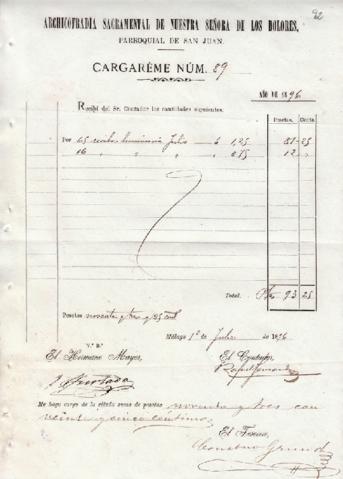 92
ARCHICOFRADIA SACRAMENTAL DE NUESTRA SEÑORA DE LOS DOLORES,
PARROQUIAL DE SAN JUAN.
CARGARÉME NÚM. 89
AÑO DE 1896
Recibí del Sr. Contador las cantidades siguientes.
Pesetas. Cénts.
Por 65 Julio á 1,25 81 25
16 " " " 0'75 12 "
Total. Pts 93 25
Pesetas noventa y tres y 25 cent
Málaga 1º de Julio de 1896
V.º B.º
El Hermano Mayor, El Contador,
Me hago cargo de la citada suma de pesetas noventa y tres con
veinte y cinco céntimos
El Tesorero,